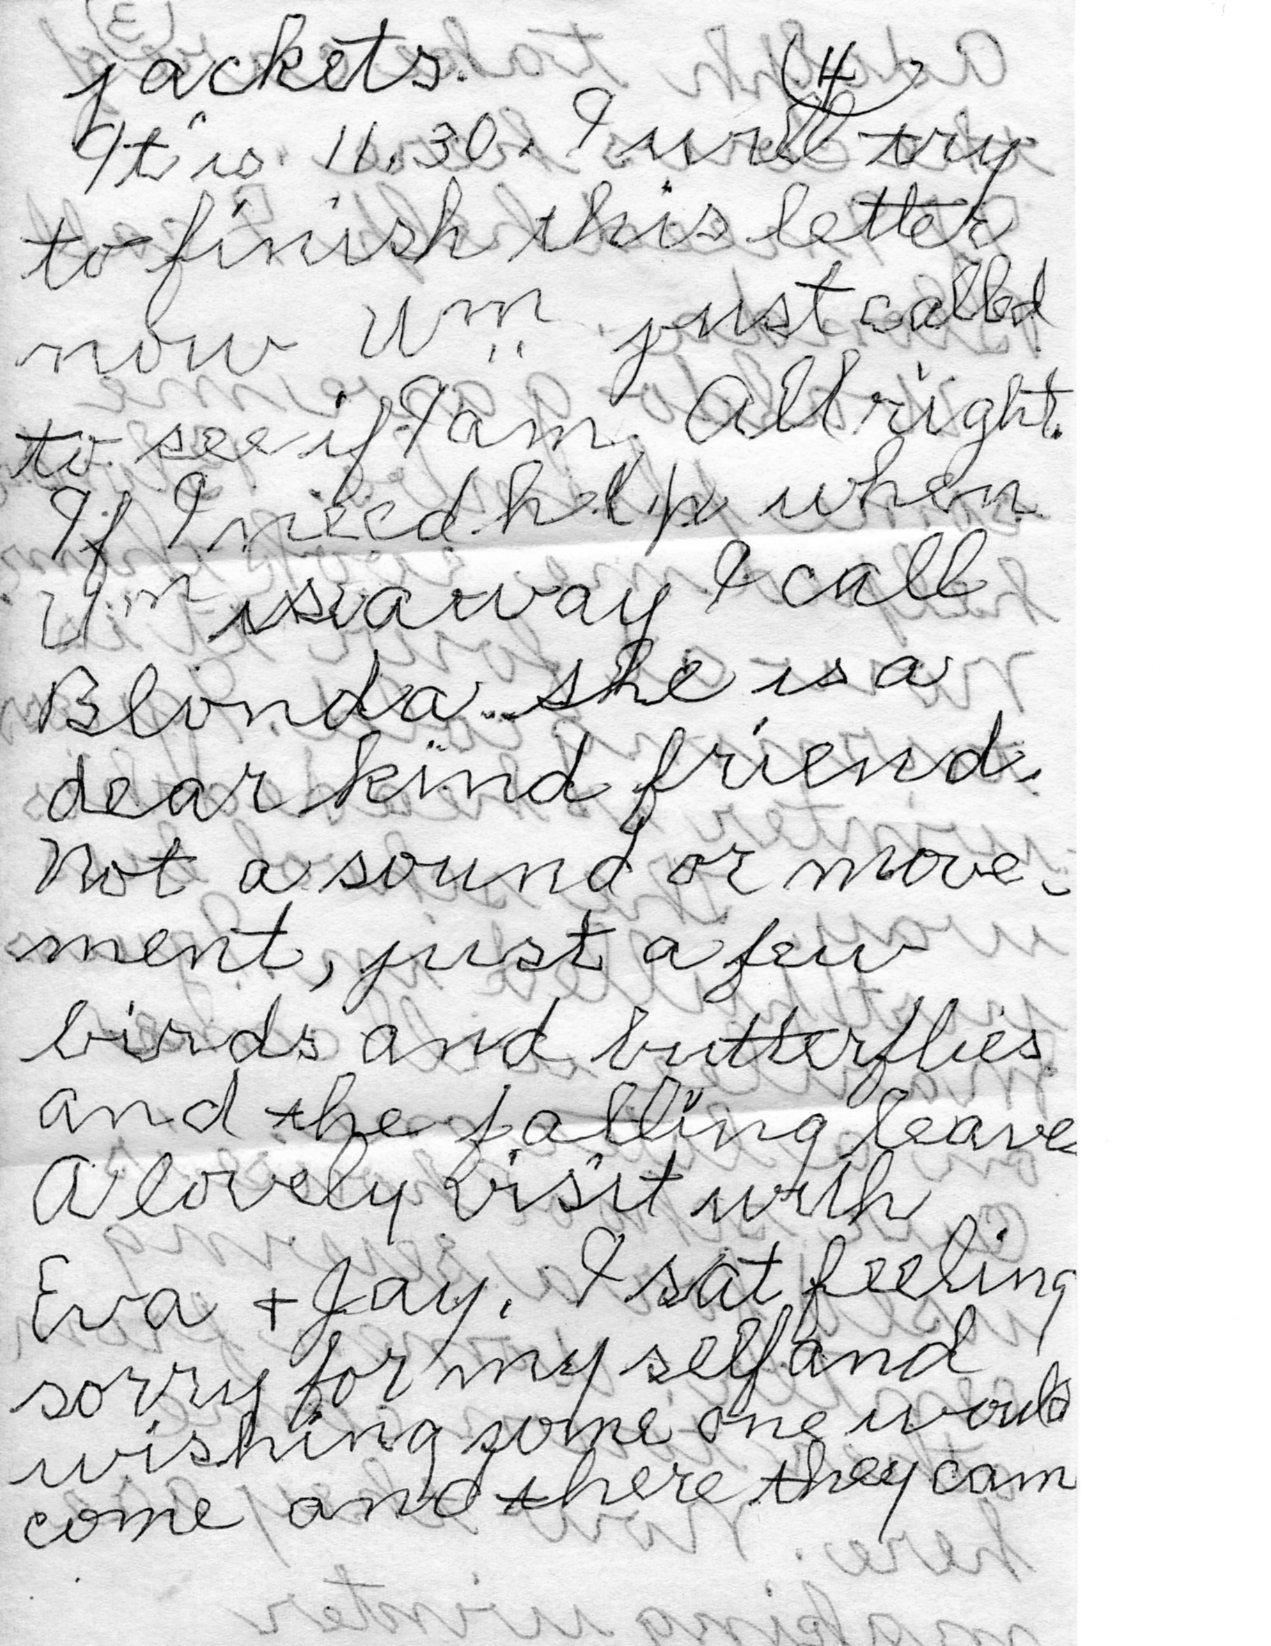 (4)
jackets.
It is 11.30. I will try
to finish this letter
now Wm just called
to see if I am All right.
If I need help when
Wm is away I call
Blonda she is a
dear kind friend.
Not a sound or move-
ment, just a few
birds and butterflies
and the falling leave
A lovely visit with
Eva + Jay. I sat feeling
sorry for my self and
wishing some one would
come and there they cam